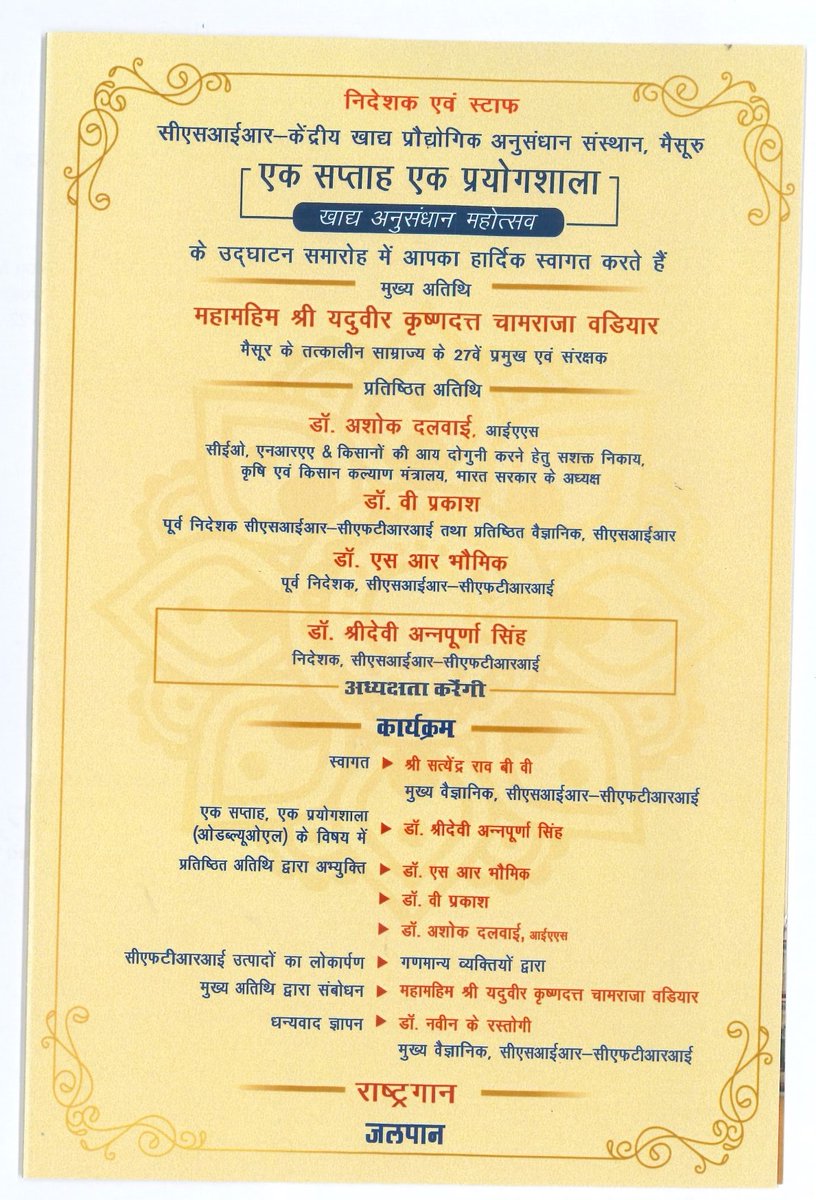 निदेशक एवं स्टाफ
सीएसआईआर–केंद्रीय खाद्य प्रौद्योगिक अनुसंधान संस्थान, मैसूरु
एक सप्ताह एक प्रयोगशाला
खाद्य अनुसंधान महोत्सव
के उद्घाटन समारोह में आपका हार्दिक स्वागत करते हैं
मुख्य अतिथि
महामहिम श्री यदुवीर कृष्णदत्त चामराजा वडियार
मैसूर के तत्कालीन साम्राज्य के 27वें प्रमुख एवं संरक्षक
प्रतिष्ठित अतिथि
डॉ. अशोक दलवाई, आईएएस
सीईओ, एनआरएए & किसानों की आय दोगुनी करने हेतु सशक्त निकाय,
कृषि एवं किसान कल्याण मंत्रालय, भारत सरकार के अध्यक्ष
डॉ. वी प्रकाश
पूर्व निदेशक सीएसआईआर–सीएफटीआरआई तथा प्रतिष्ठित वैज्ञानिक, सीएसआईआर
डॉ. एस आर भौमिक
पूर्व निदेशक, सीएसआईआर–सीएफटीआरआई
डॉ. श्रीदेवी अन्नपूर्णा सिंह
निदेशक, सीएसआईआर–सीएफटीआरआई
अध्यक्षता करेंगी
कार्यक्रम
स्वागत ▶ श्री सत्येंद्र राव बी वी
मुख्य वैज्ञानिक, सीएसआईआर–सीएफटीआरआई
एक सप्ताह, एक प्रयोगशाला
(ओडब्ल्यूओएल) के विषय में ▶ डॉ. श्रीदेवी अन्नपूर्णा सिंह
प्रतिष्ठित अतिथि द्वारा अभ्युक्ति ▶ डॉ. एस आर भौमिक
▶ डॉ. वी प्रकाश
▶ डॉ. अशोक दलवाई, आईएएस
सीएफटीआरआई उत्पादों का लोकार्पण ▶ गणमान्य व्यक्तियों द्वारा
मुख्य अतिथि द्वारा संबोधन ▶ महामहिम श्री यदुवीर कृष्णदत्त चामराजा वडियार
धन्यवाद ज्ञापन ▶ डॉ. नवीन के रस्तोगी
मुख्य वैज्ञानिक, सीएसआईआर–सीएफटीआरआई
राष्ट्रगान
जलपान